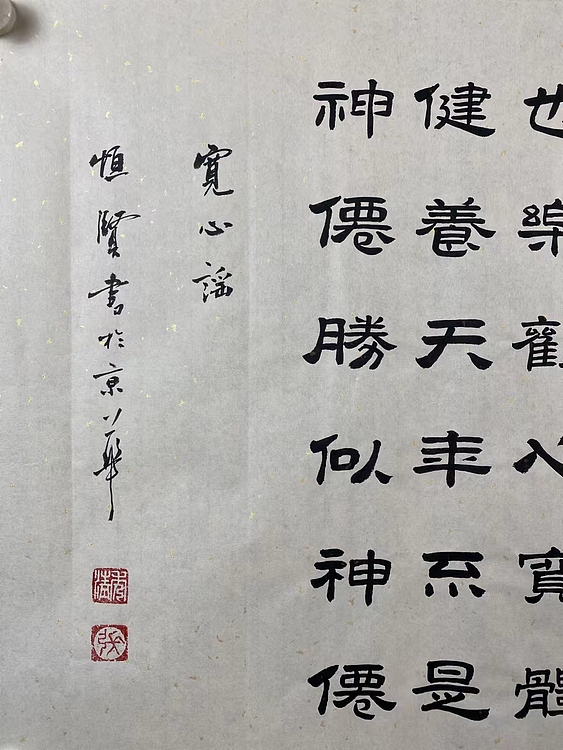 也樂觀心寬體
健養天年不是
神僊勝似神僊
寬心謠
恒賢書於京華